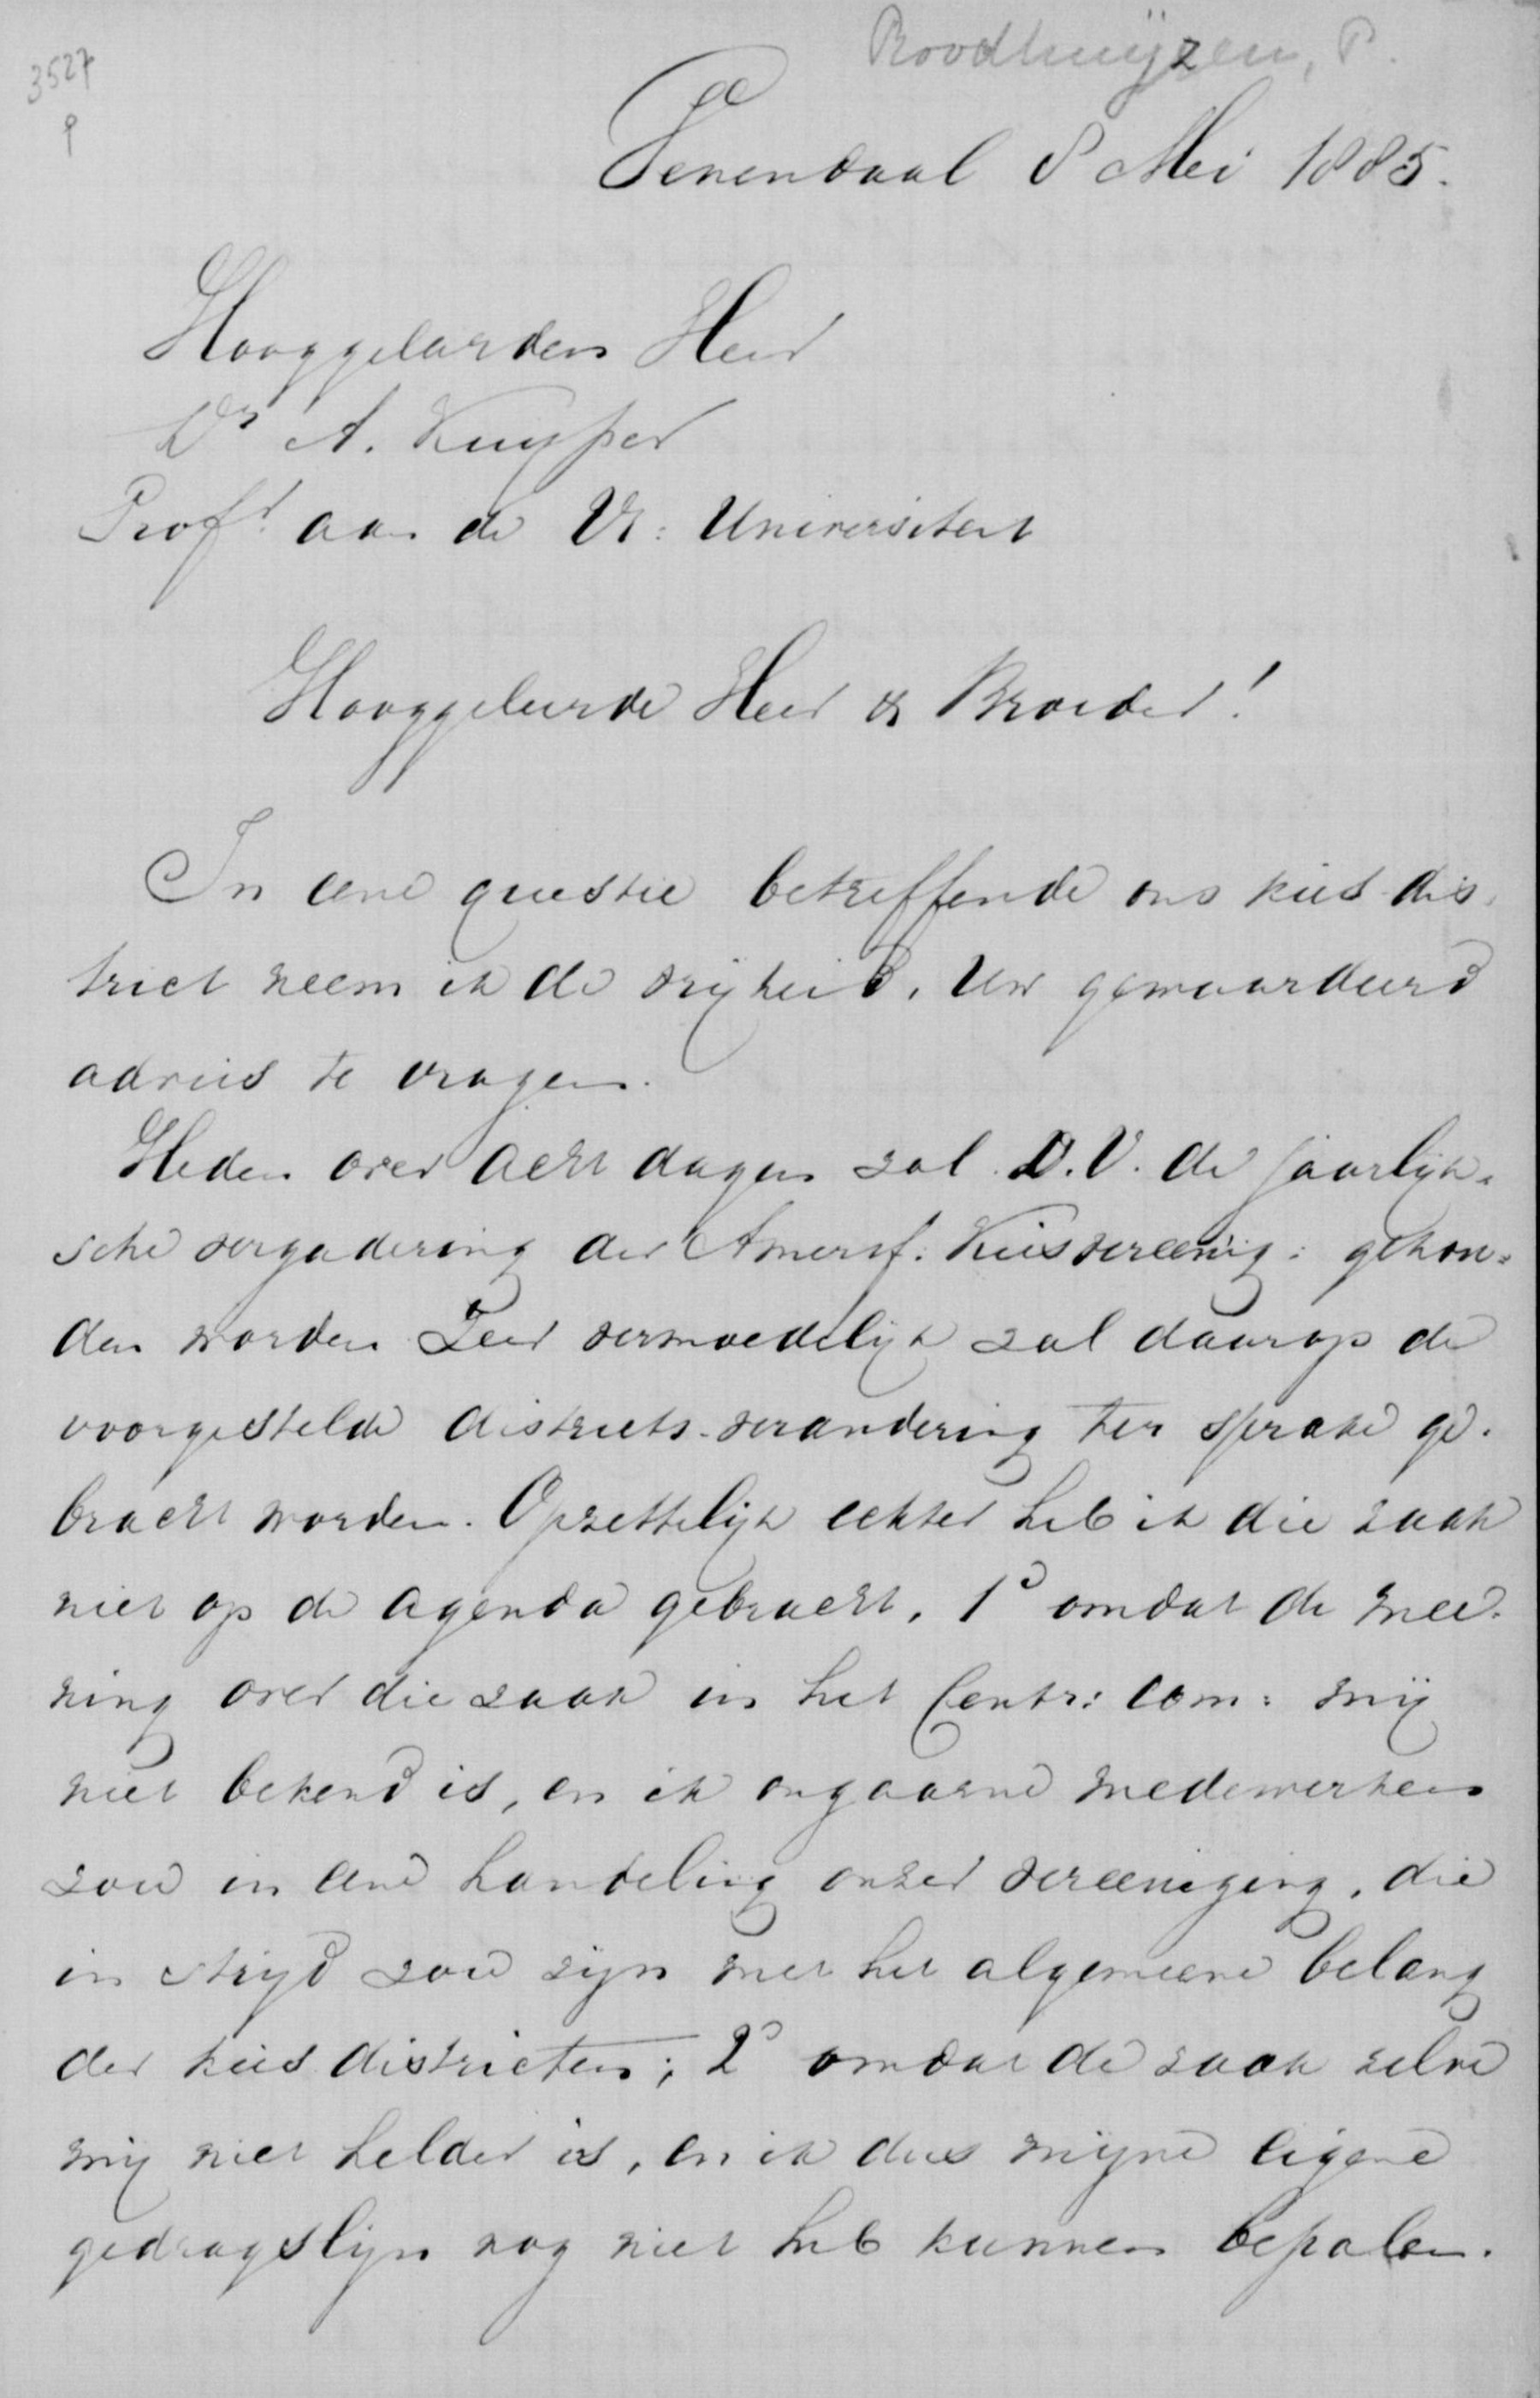 Roodhuijzen, P.
3527
9
Venendaal 8 Mei 1885.
Hooggeleerden Heer
Dr A. Kuyper
Profr aan de Vr: Universiteit
Hooggeleerde Heer & Broeder!
In eene questie betreffende ons kies dis-
trict neem ik de vrijheid, Uw gewaardeerd
advies te vragen.
Heden over acht dagen zal D.V. de jaarlijk-
sche vergadering der Amersf: Kiesvereenig: gehou-
den worden. Zeer vermoedelijk zal daarop de
voorgestelde districts-verandering ter sprake ge-
bracht worden. Opzettelijk echter heb ik die zaak
niet op de agenda gebracht, 1o omdat de mee-
ning over die zaak in het Centr: Com: mij
niet bekend is, en ik ongaarne medewerken
zou in eene handeling onzer vereeniging, die
in strijd zou zijn met het algemeene belang
der kies districten; 2o omdat de zaak zelve
mij niet helder is, en ik dus mijne eigene
gedragslijn nog niet heb kunnen bepalen.